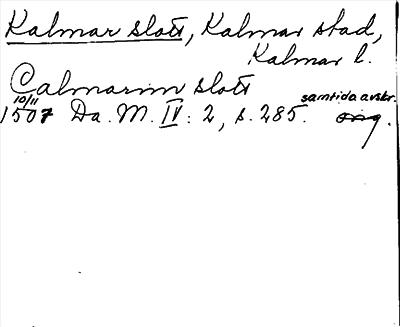 Kalmar slott, Kalmar stad,
Kalmar l.
Calmarnn slott
10/11 samtida avskr.
1507 Da. M. IV: 2, s. 285. orig.